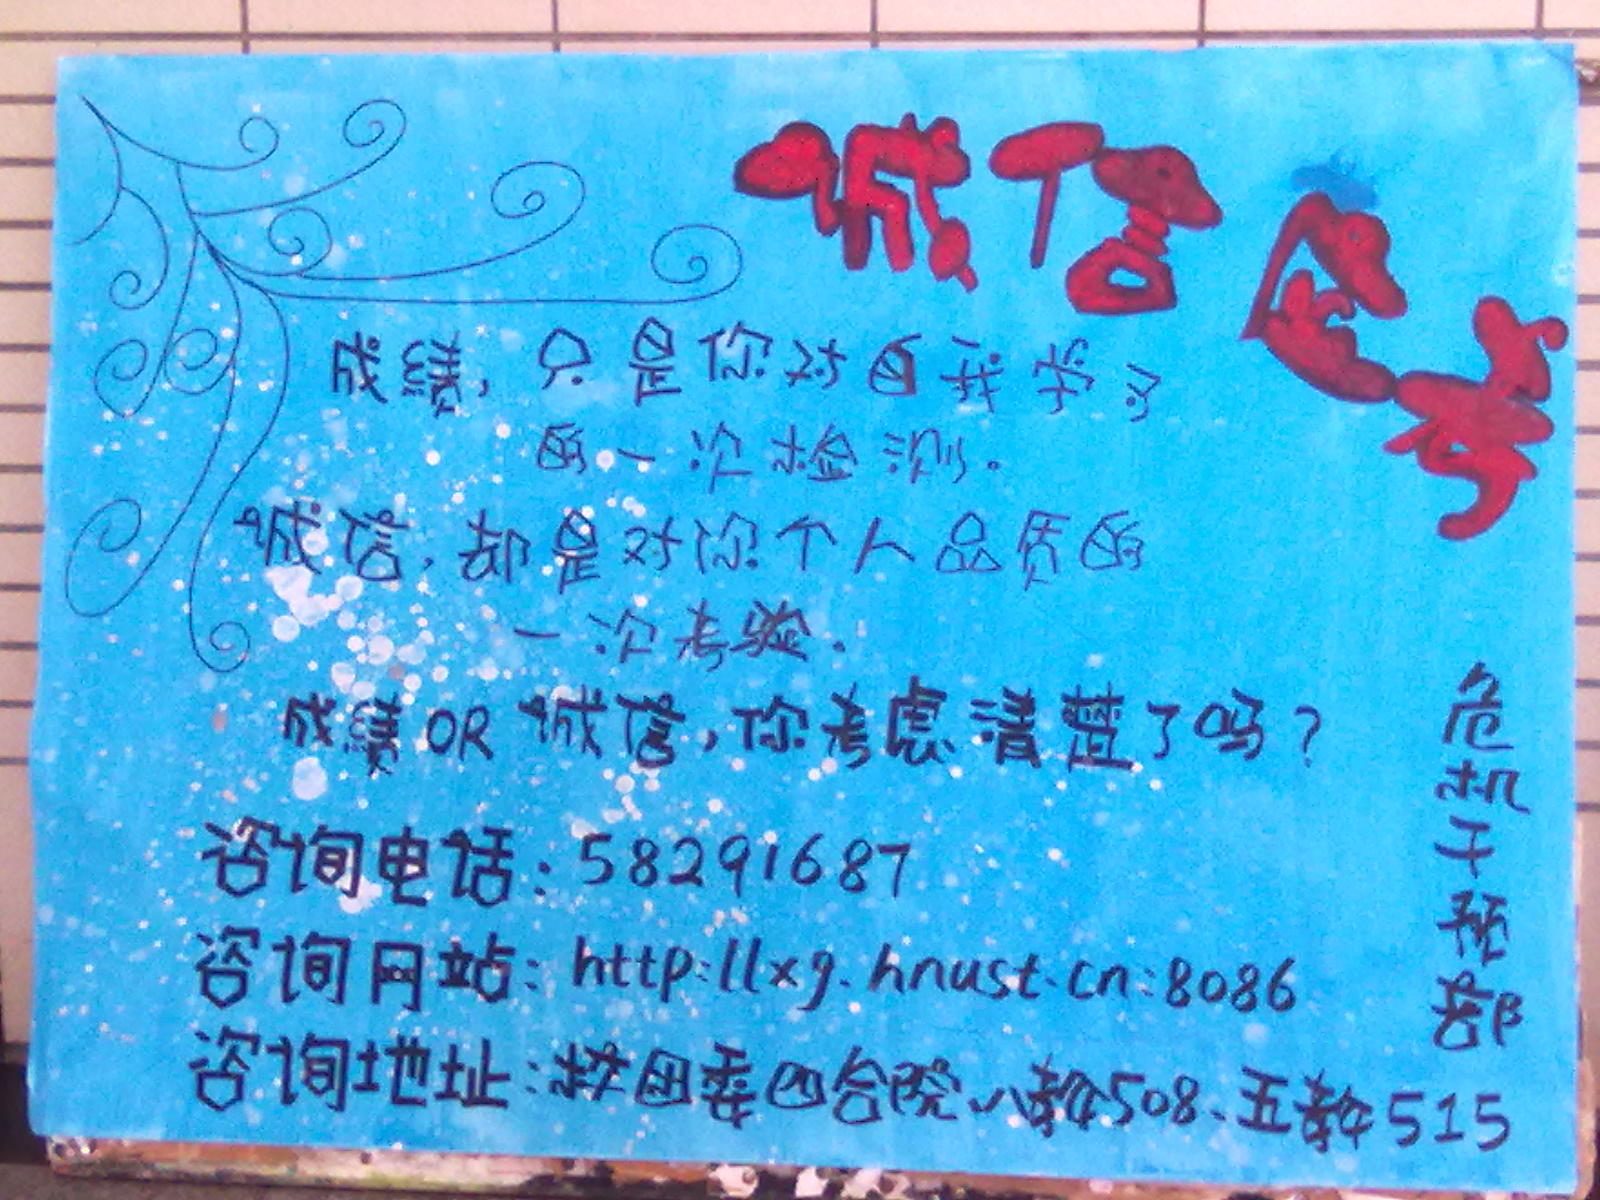 诚信应考
成绩,只是你对自我学习
的一次检测.
诚信,却是对你个人品质的
一次考验.
成绩OR诚信,你考虑清楚了吗?
咨询电话:58291687
咨询网站:http://xg.hnust.cn:8086
咨询地址:校团委四合院、八教508、五教515
危机干预部